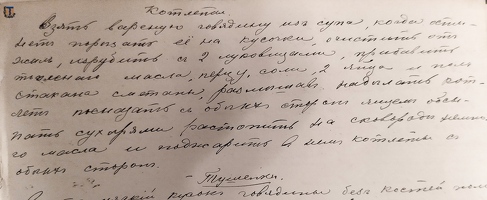 Котлеты.
Взять вареную говядину изъ супа, когда осты-
нетъ порезать её на кусочки, очистить отъ
жилъ, изрубить съ 2 луковицами, прибавить
масла, перцу, соли, 2 яйца и пол
стакана сметаны, размешать, наделать кот-
летъ помазать съ обеихъ сторонъ яйцемъ обсы-
пать сухарями растопить на сковороде немно-
го масла и поджарить в немъ котлеты с
обеихъ сторонъ.
Тушенки.
кусокъ говядины безъ костей